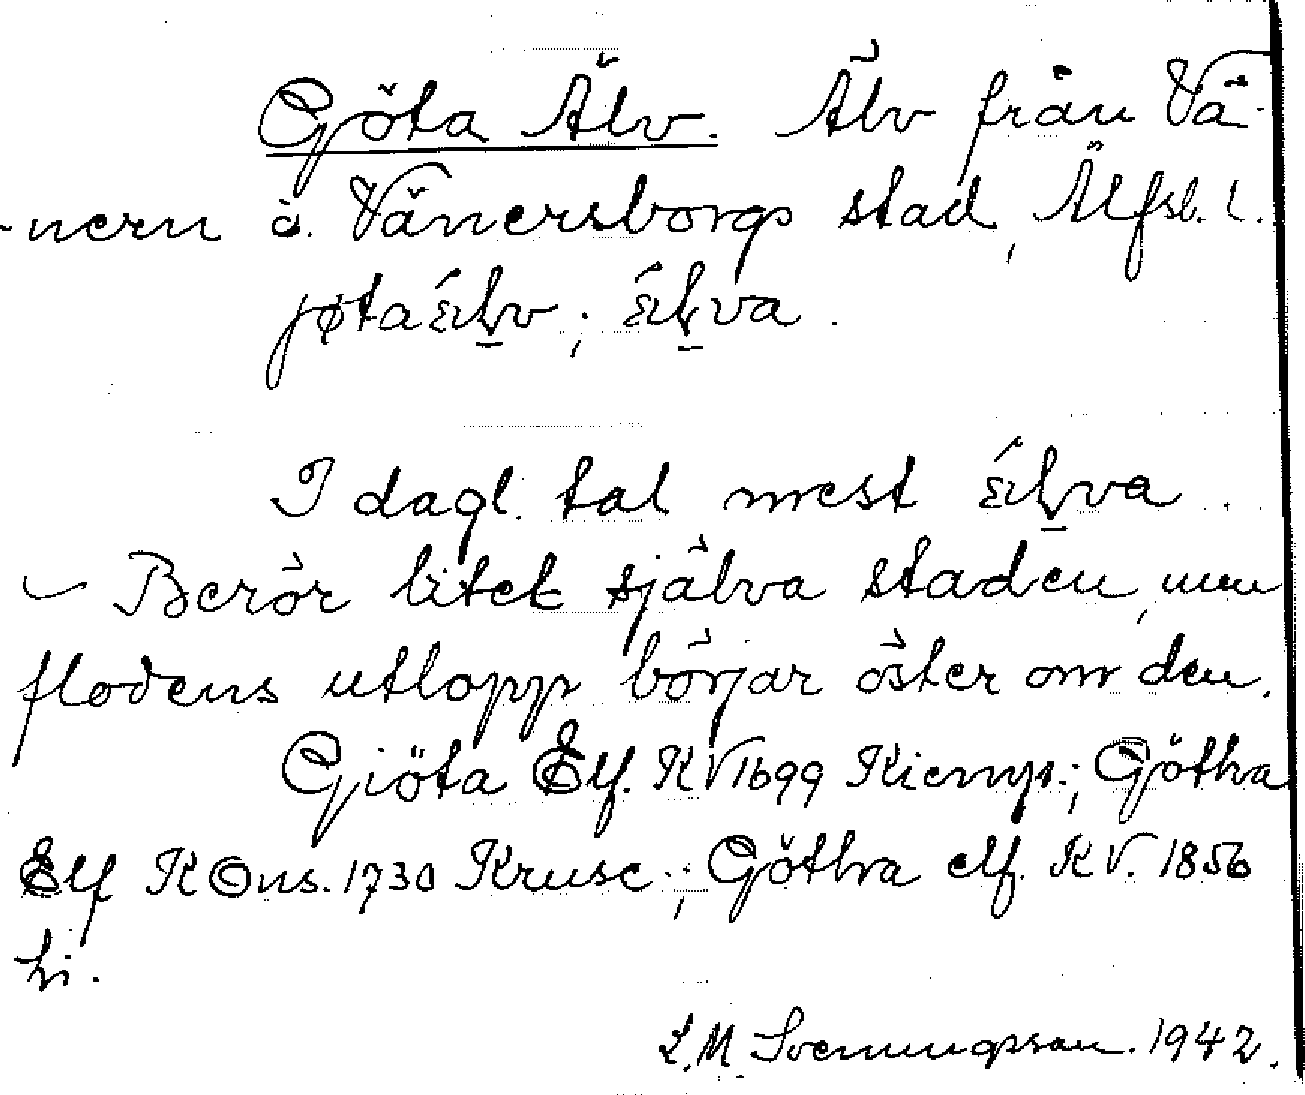 Göta Älv. Älv från Vä-
-nern ö. Vänersborgs stad, Älfsb. l.
jøta; va.
I dagl. tal mest va.
- Berör litet själva staden, men
flodens utlopp börjar öster om den.
Giöta Elf. KV 1699 Kiemp.; Götha
Elf K Ons. 1730 Kruse.; Götha elf. KV. 1856
Li.
L.M. Svenungsson. 1942.